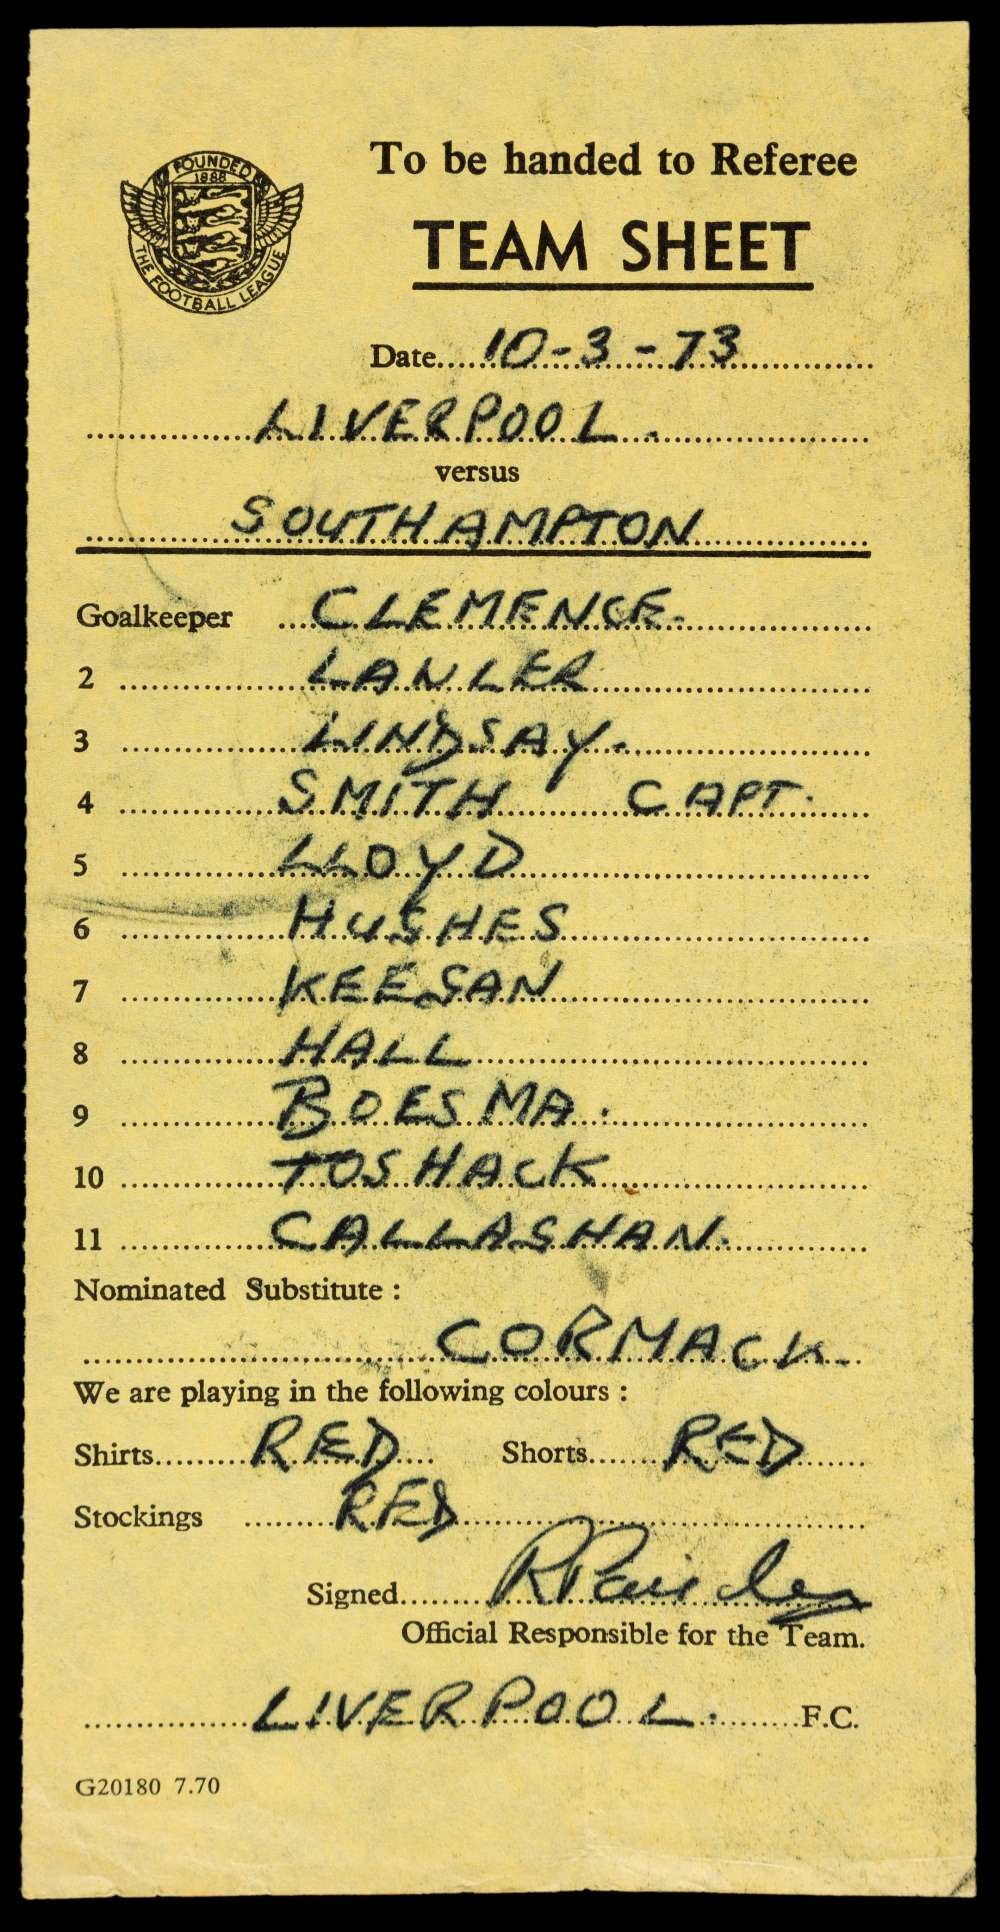 FOUNDED
1888
THE FOOTBALL LEAGUE
To be handed to Referee
TEAM SHEET
Date 10-3-73
LIVERPOOL.
versus
SOUTHAMPTON
Goalkeeper CLEMENCE.
2 LAWLER
3 LINDSAY.
4 SMITH CAPT.
5 LLOYD
6 HUGHES
7 KEEGAN
8 HALL
9 BOESMA.
10 TOSHACK
11 CALLAGHAN.
Nominated Substitute :
CORMACK.
We are playing in the following colours :
Shirts RED Shorts RED
Stockings RED
Signed R Paisley
Official Responsible for the Team.
LIVERPOOL. F.C.
G20180 7.70